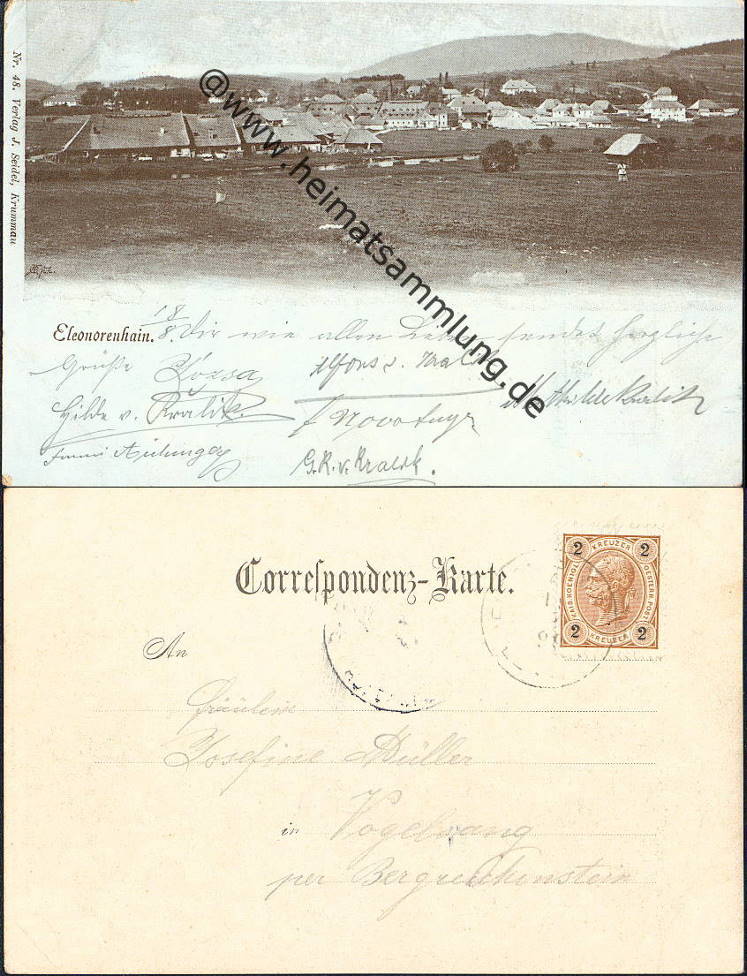 Nr. 48. Verlag J. Seidel, Krummau
@www.heimatsammlung.de
18/8.
Eleonorenhain. Dir wie allen Lieben sendet herzliche
Grüße Alfons v. Kralik
Hilde v. Kralik. Novotny Mathilde Kralik
G.K.v.Kralik.
Correspondenz-Karte.
2 KREUZER 2
KAIS. KOENIGL. OESTERR. POST
2 KREUZER 2
An
Fräulein
Josefine Müller
in Vogelsang
per Bergreichenstein